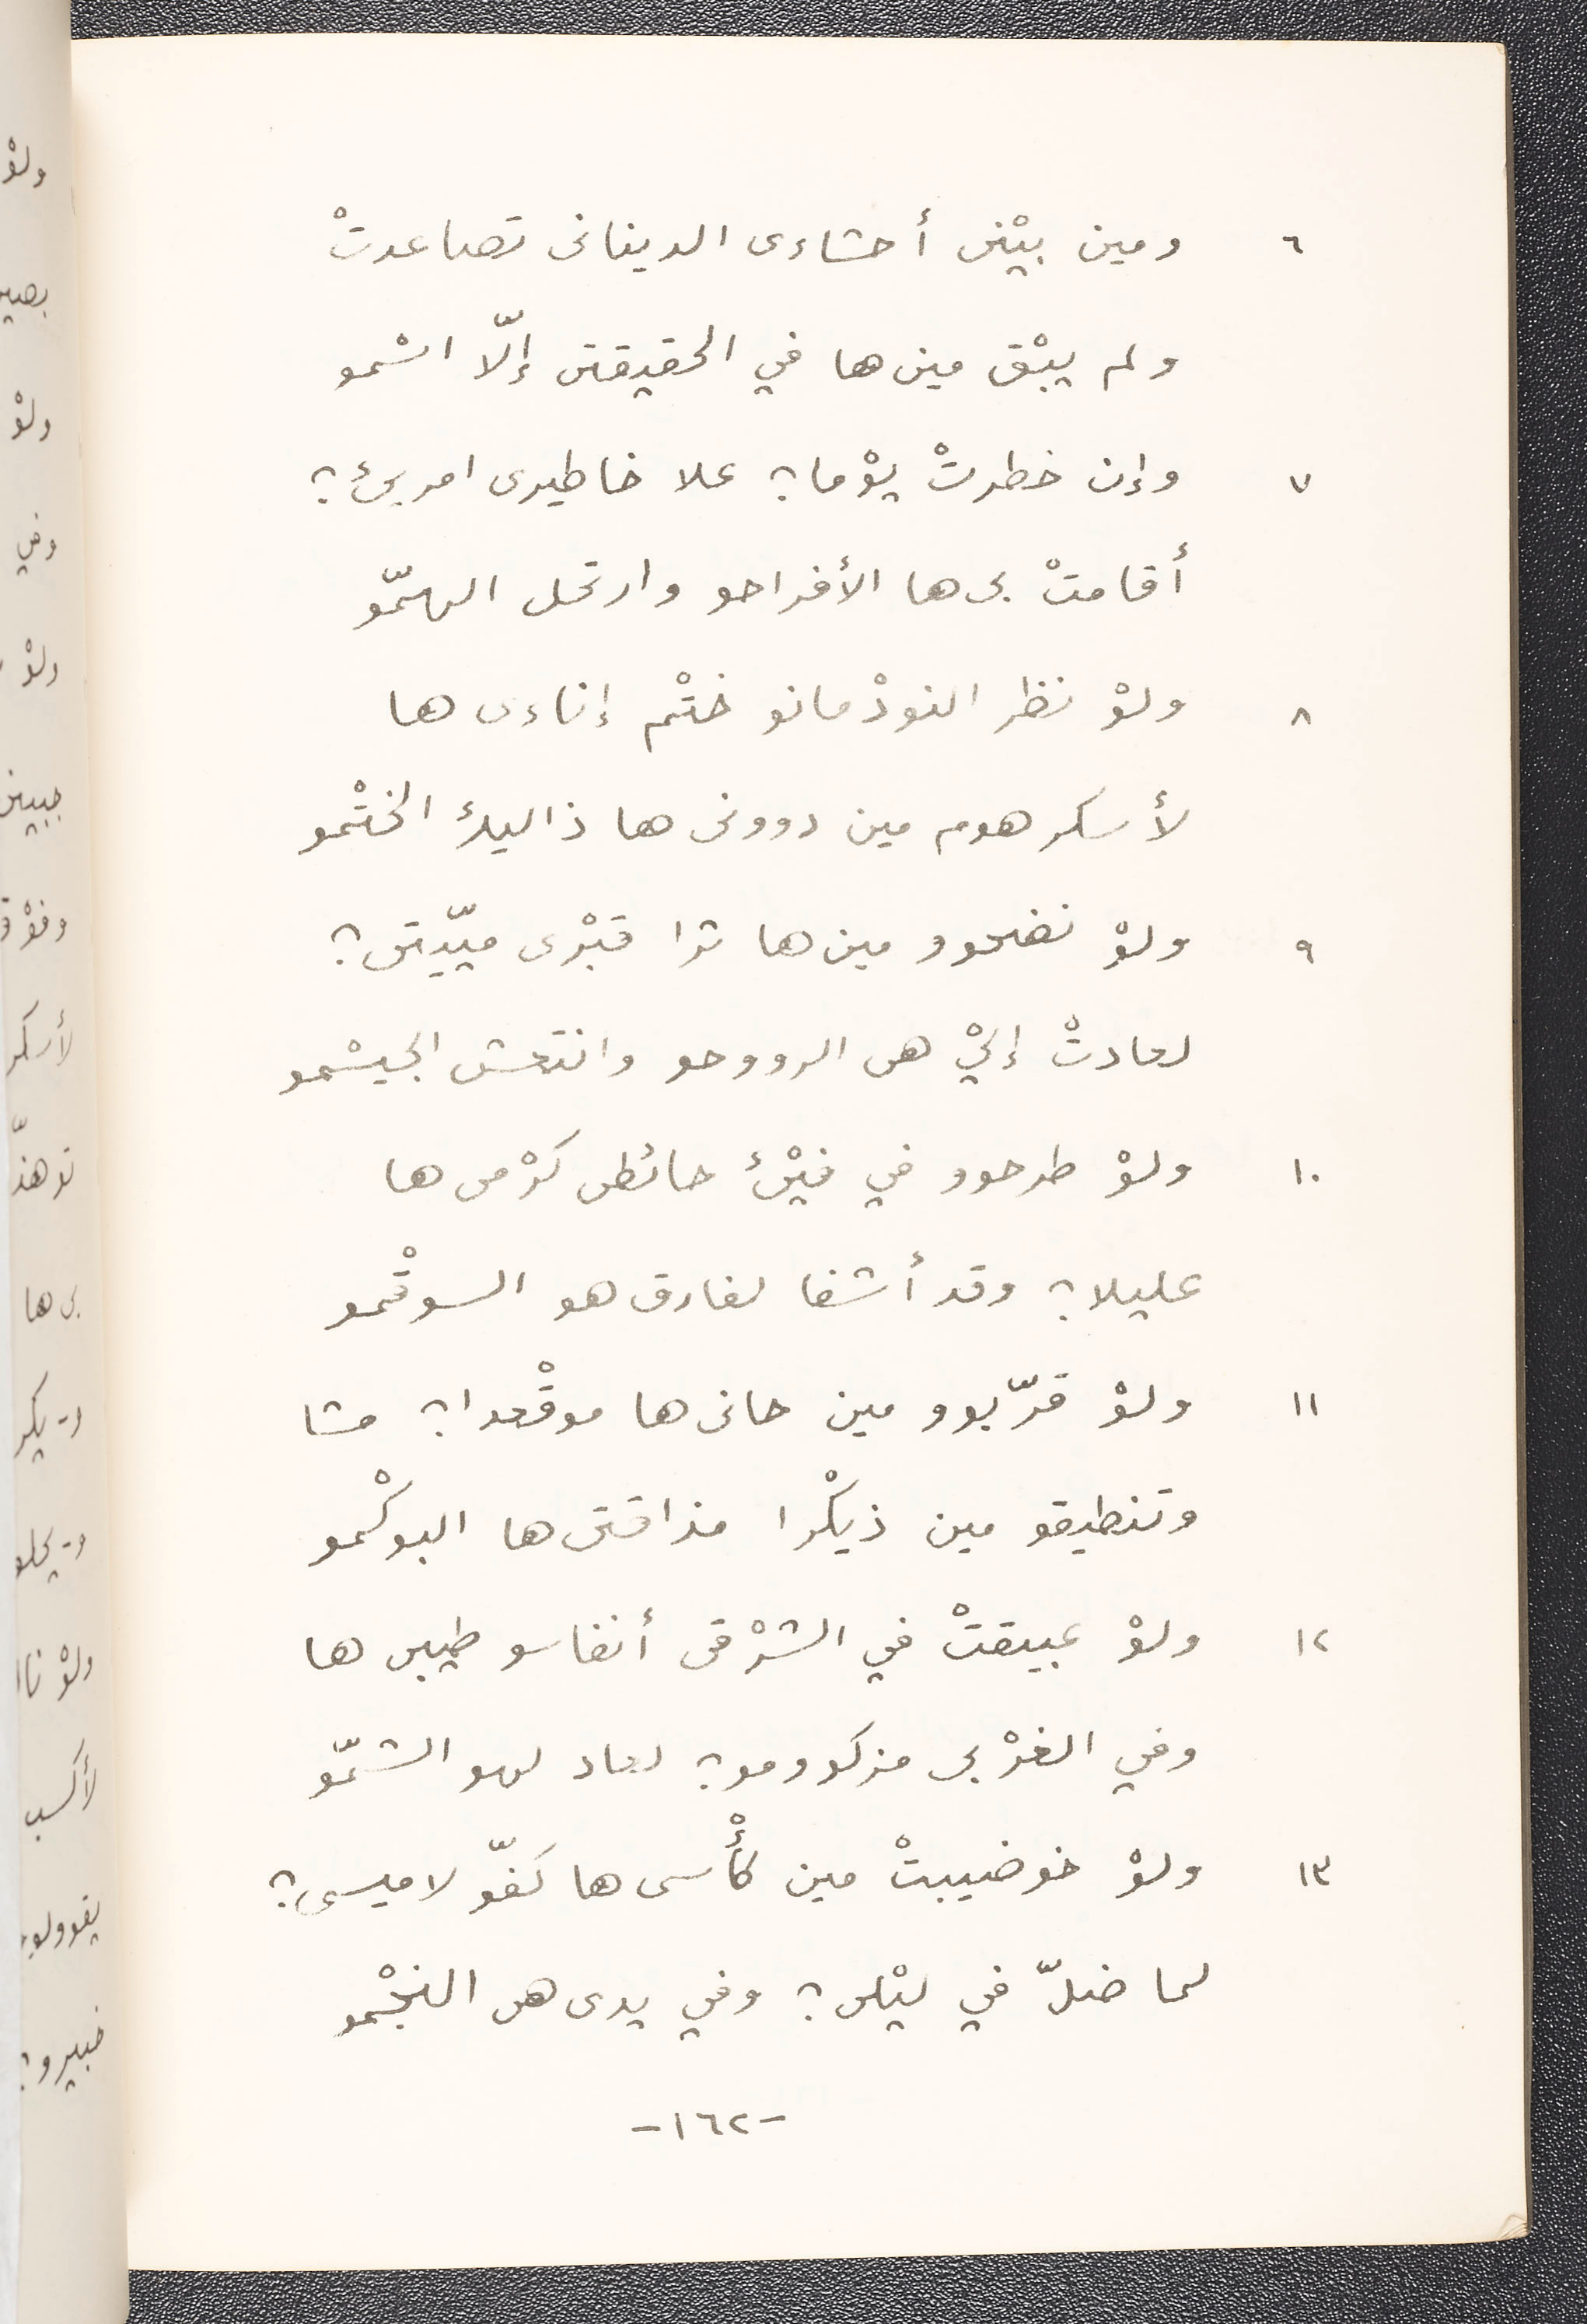 ٦ ومين بيْنى أحشاءى الدينانى تصاعدتْ
ولم يبْق مينها في الحقيقتى إلّا اسْمو
٧ وإن خطرتْ يوْما؟ علا خاطيرى امريئ؟
أقامتْ بىها الأفراحو وارتحل الهمّو
٨ ولوْ نظر النودْمانو ختْم إناءىها
لأسكرهوم مين دوونىها ذاليك الختْمو
٩ ولوْ نضحوو مينها ثرا قبْرى ميّيتى؟
لعادتْ إليْهى الرووحو وانتعش الجيسْمو
١٠ ولوْ طرحوو في فيْئ حائطى كرْمىها
عليلا؟ وقد أشفا لفارقهو السوقْمو
١١ ولوْ قرّبوو مين حانىها موقْعدا؟ مشا
وتنطيقو مين ذيكْرا مذاقتىها البوكْمو
١٢ ولوْ عبيقتْ في الشرْقى أنفاسو طيبىها
وفي الغرْبى مزكوومو؟ لعاد لهو الشمّو
١٣ ولوْ خوضيبتْ مين كأْسىها كفّو لاميسى؟
لما ضلّ في ليْلى؟ وفي يدىهى النجْمو
-١٦٢-